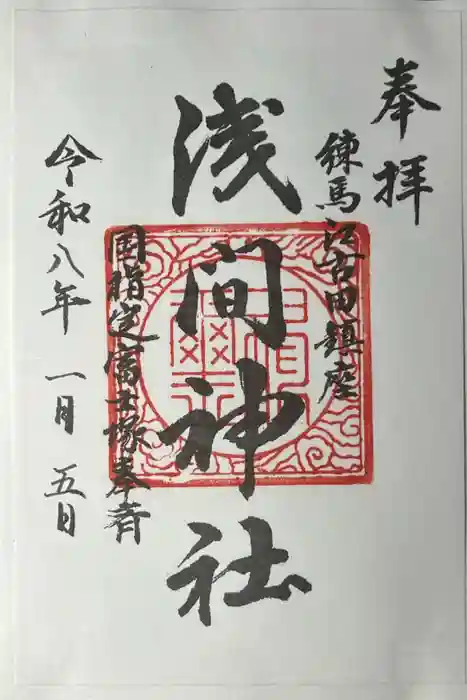 奉拝
練馬江古田鎮座
浅間神社
国指定富士塚奉斎
令和八年 一月 五日